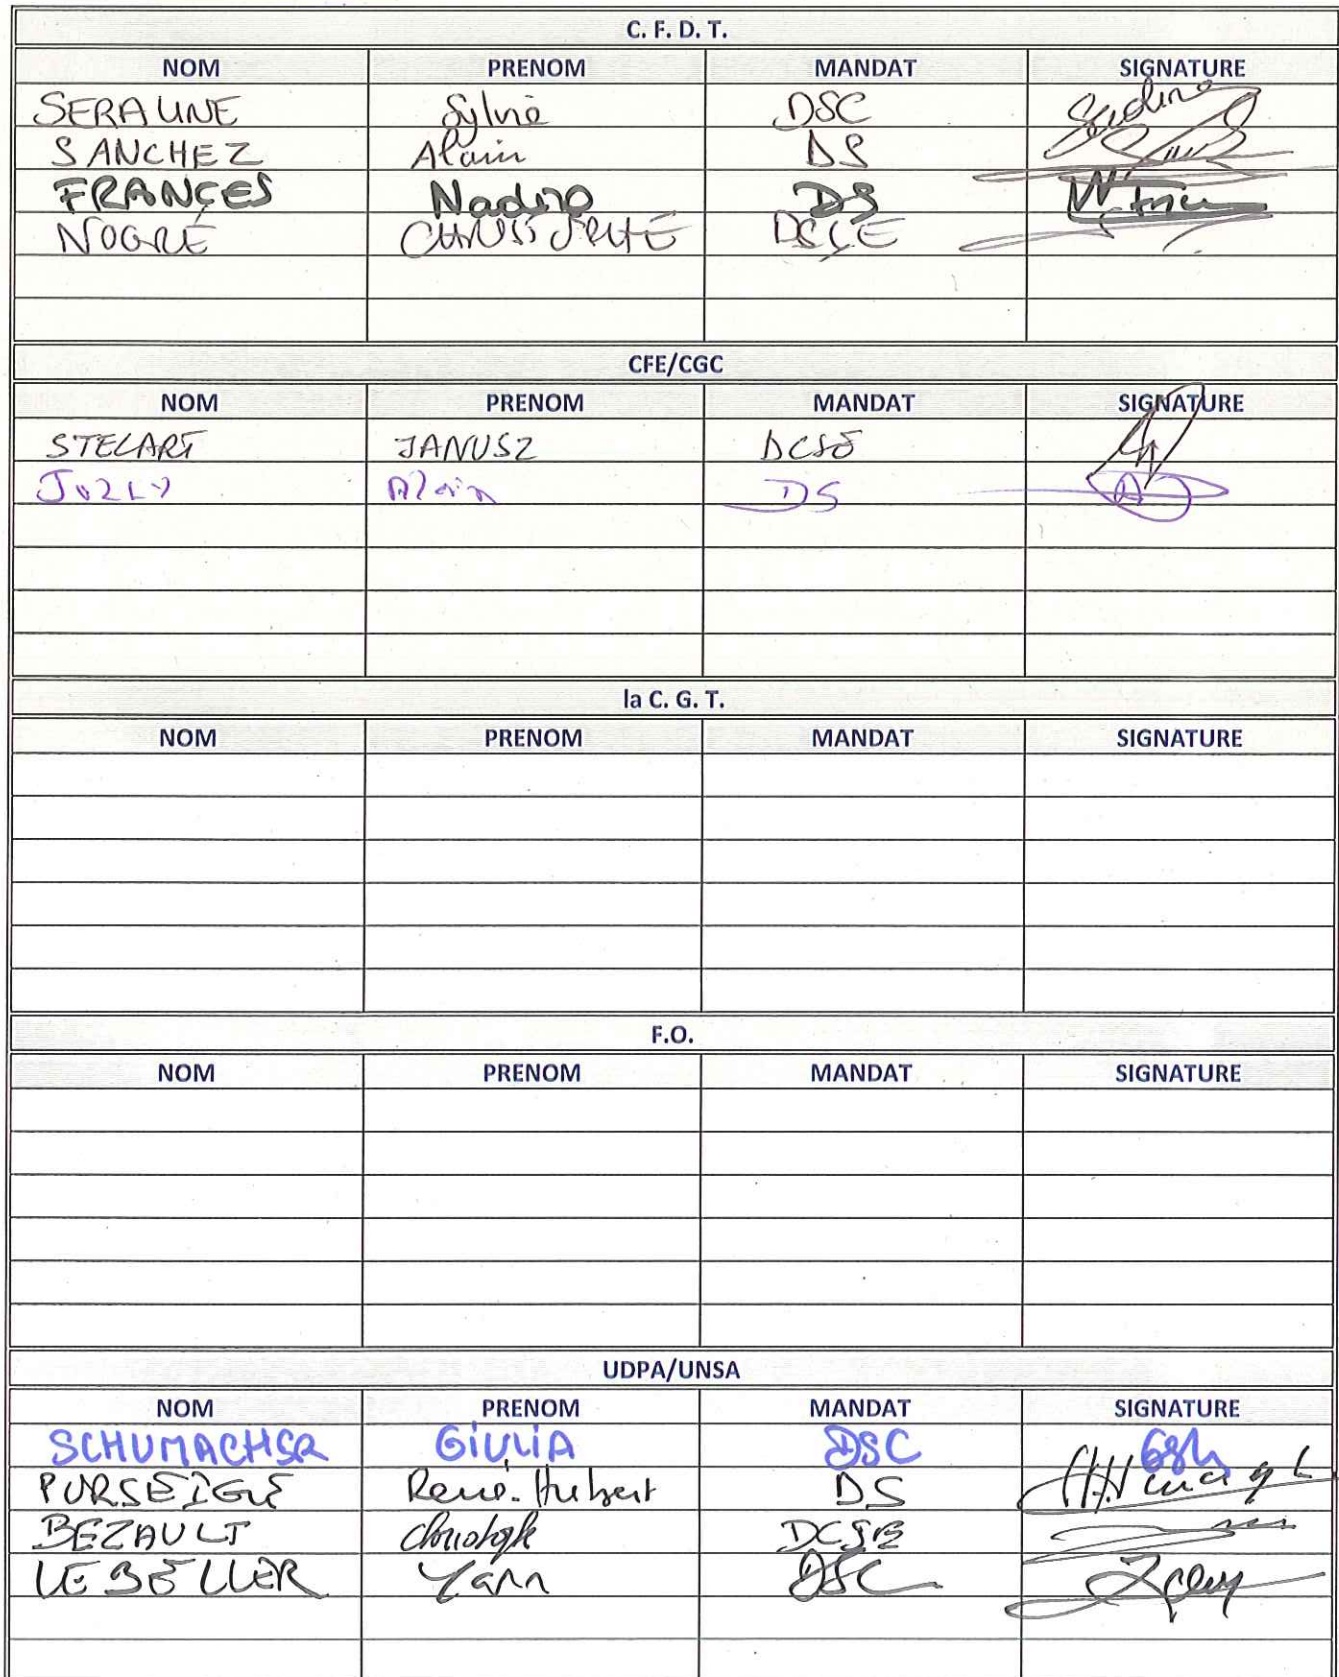 C. F. D. T.
NOM PRENOM MANDAT SIGNATURE
SERAUNE Sylvie DSC
SANCHEZ Alain DS
FRANCES Nadine DS
NOGRÉ DSCE
CFE/CGC
NOM PRENOM MANDAT SIGNATURE
STECART JANUSZ DCSE
JOLLY Alain DS
la C. G. T.
NOM PRENOM MANDAT SIGNATURE
F.O.
NOM PRENOM MANDAT SIGNATURE
UDPA/UNSA
NOM PRENOM MANDAT SIGNATURE
SCHUMACHER GIULIA DSC
PURSEIGLE René-Hubert DS
BEZAULT Christophe DCSE
LE BELLER Yann DSC